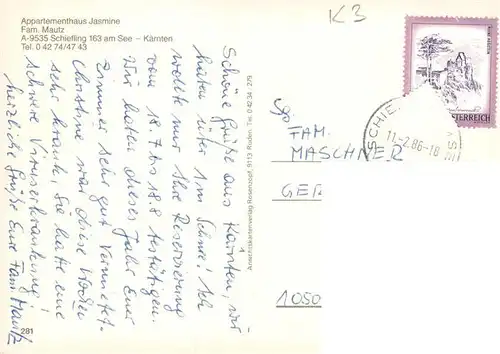 Appartementhaus Jasmine
Fam. Mautz
A-9535 Schiefling 163 am See – Kärnten
Tel. 0 42 74/47 43
Schöne Grüße aus Kärnten, wir
haben über 1m Schnee! Ich
wollte nur Ihre Reservierung
vom 18.7 bis 18.8 bestätigen.
Wir haben dieses Jahr Euer
Zimmer sehr gut vermietet.
Christine war diese Woche
sehr krank, sie hatte eine
schwere Viruserkrankung!
herzliche Grüße Eure Fam Mautz
281
Ansichtskartenverlag Rosenzopf, 9113 Ruden, Tel. 0 42 34 - 279
K3
FAM.
MASCHNER
GER
1050
ÖSTERREICH
SCHIE
11.-2.86-18